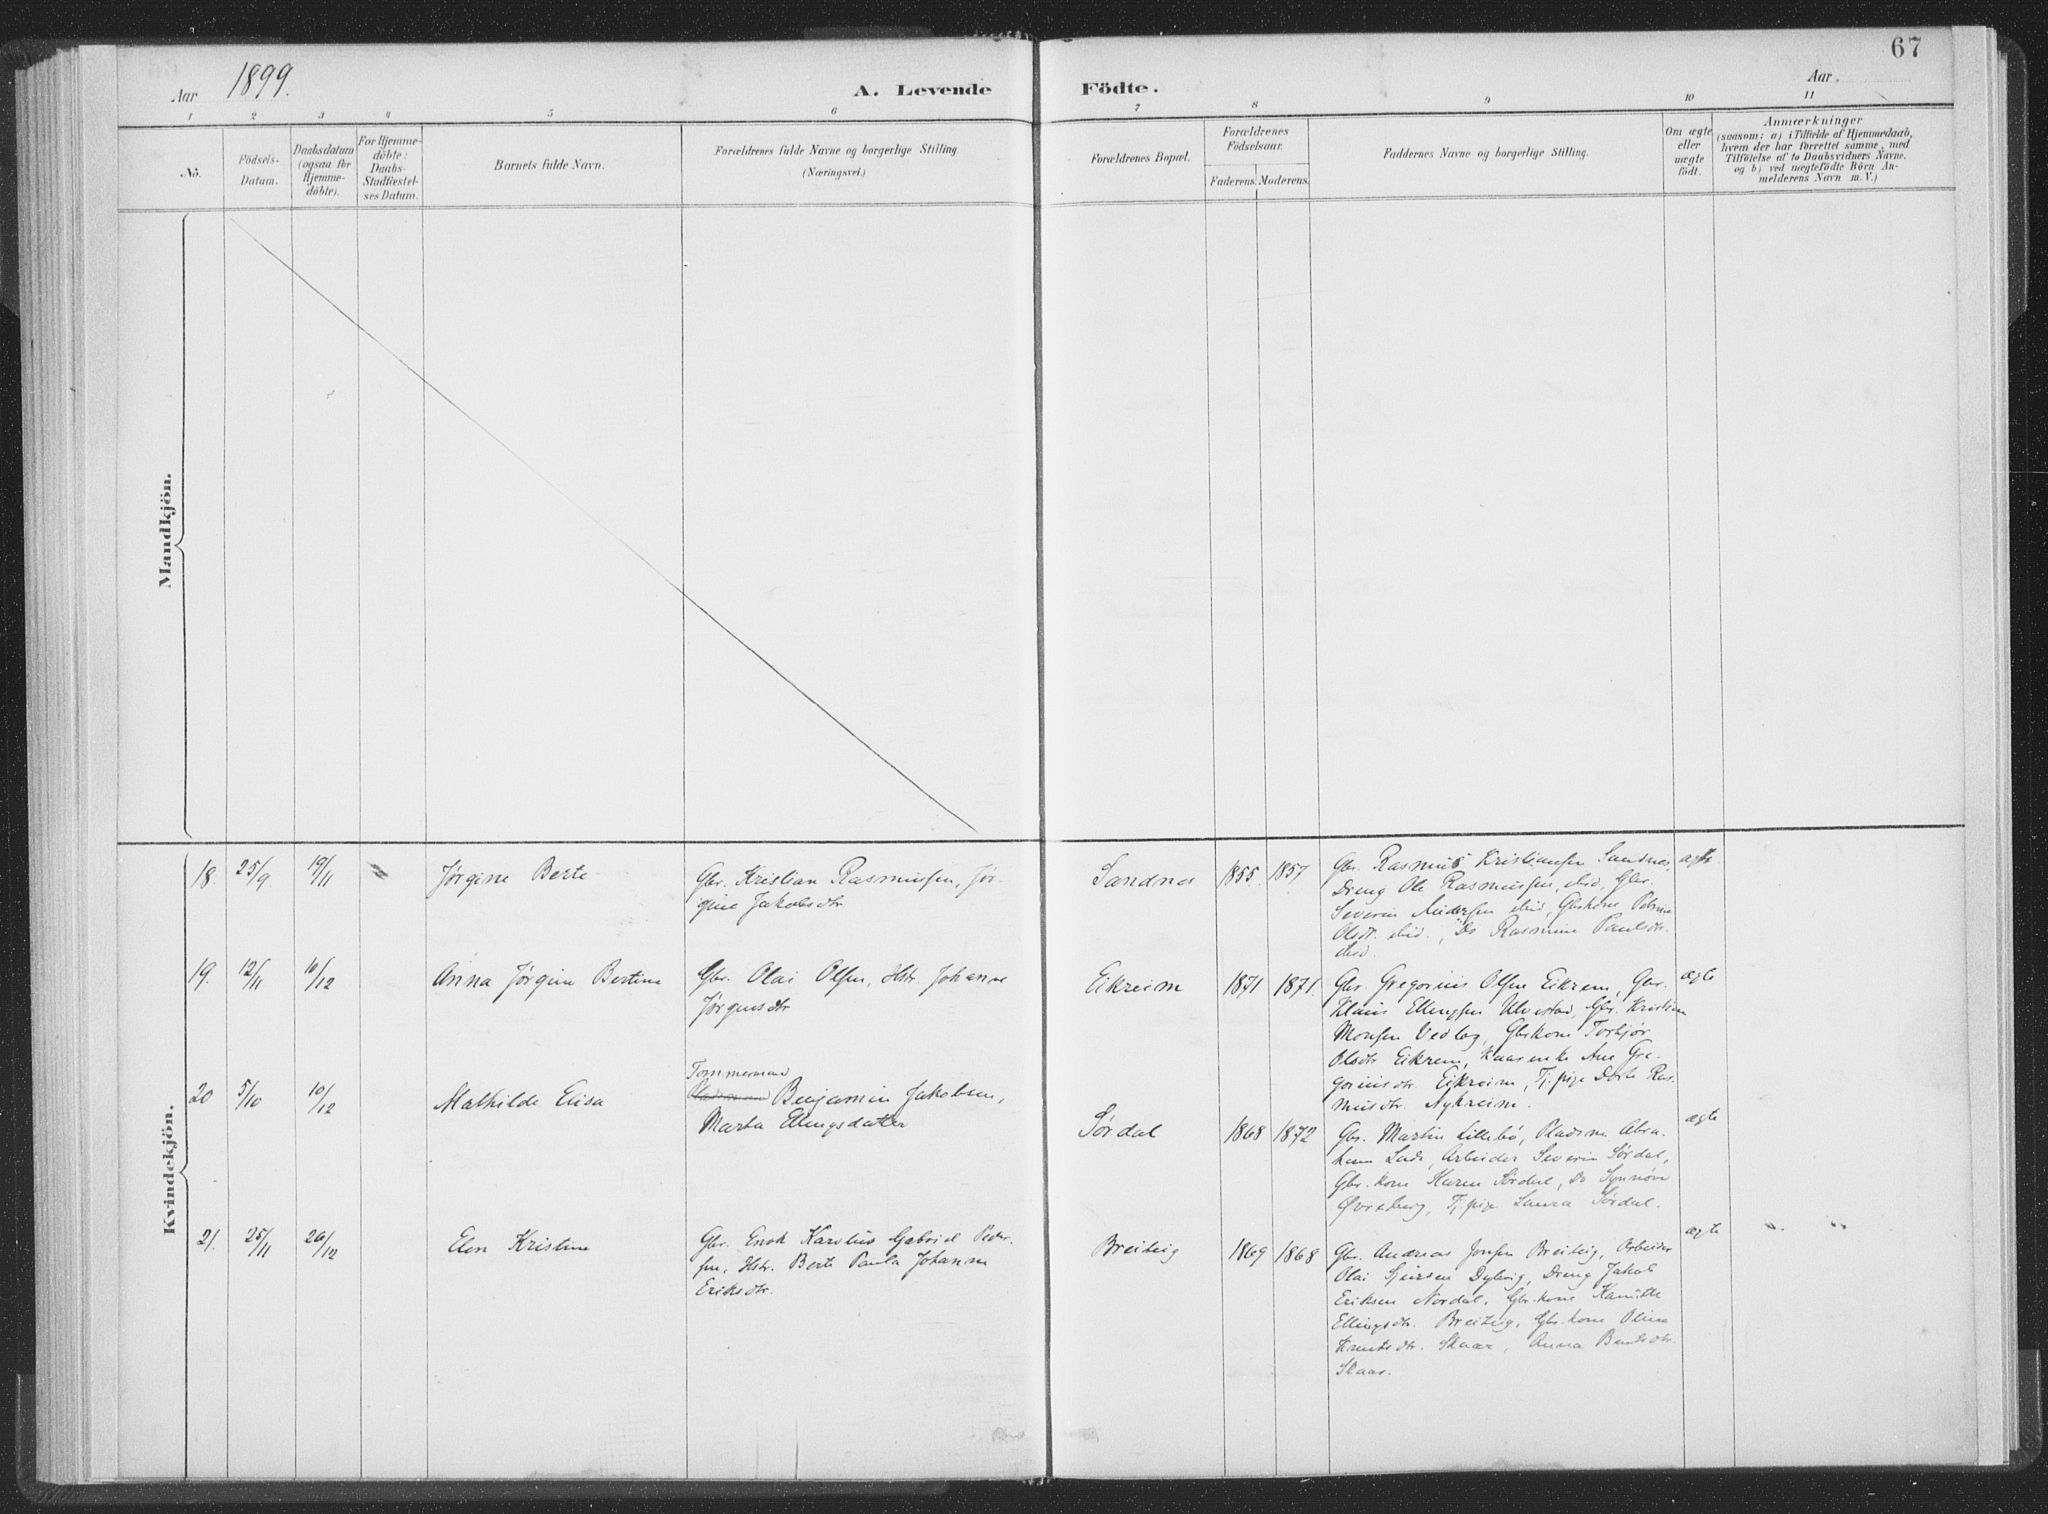 67
Aar 1899.
A. Levende Födte.
Aar
1 2 3 4 5 6 7 8 9 10 11
No.
Födsels-
Datum.
Daabsdatum
(ogsaa for
Hjemme-
döbte).
For Hjemme-
döbte:
Daabs-
Stadfæstel-
ses Datum.
Barnets fulde Navn.
Forældrenes fulde Navne og borgerlige Stilling
(Næringsvei.)
Forældrenes Bopæl.
Forældrenes
Födselsaar.
Faderens. Moderens.
Faddernes Navne og borgerlige Stilling.
Om ægte
eller
uægte
födt.
Anmærkninger
(saasom: a) i Tilfælde af Hjemmedaab,
hvem der har forrettet samme, med
Tilföielse af to Daabsvidners Navne,
og b) ved uægtefödte Börn An-
melderens Navn m. V.)
Mandkjön.
Kvindekjön.
18. 25/9. 19/11
Jørgine Berte
Gbr. Kristian Rasmussen, Jør-
gine Jakobsdtr
Sandnes
1855. 1857
Gbr. Rasmus Kristiansen Sandnes,
Dreng Ole Rasmussen, ibid, Gbr.
Severin Andersen ibid, Gbrkone
Olsdt. ibid., Do Rasmine Paulsdtr.
ibid.
ægte
19. 12/11 10/12
Anna Jørgine Bertine
Gbr. Olai Olsen, Hstr Johanne
Jørgensdtr
Eikreim
1871 1871.
Gbr Gregorius Olsen Eikrem, Gbr.
Klaus Ellingsen Ulvestad, Gbr. Kristian
Monsen Vedlog, Gbrkone Torbjør
Olsdtr Eikrem, Ane Gre-
goriusdtr. Eikreim, Tj. pige Dorte Ras-
musdtr. Nykreim.
ægte
20 5/10 10/12
Mathilde Elisa
Tømmermand
Benjamin Jakobsen,
Marta Ellingsdatter
Sørdal
1868 1872
Gbr. Martin Lillebø, Pladsm. Abra-
ham Arbeider Severin Sørdal,
Gbr. kone Karen Sørdal, Do Synnøve
Øvreberg, Tj. pige Laura Sørdal.
ægte
21. 25/11 26/12
Elen Kristine
Gbr. Enok Karolius Gabriel Peder-
sen, Hstr. Berte Paula Johanne
Eriksdtr.
Breiteig
1869 1868
Gbr. Andreas Jonsen Breiteig, Arbeider
Olai Sjursen Dybvig, Dreng Jakob
Eriksen Nordal, Gbr. kone Kamilla
Ellingsdtr. Breiteig, Gbr. kone Oline
Knutsdtr. Skaar, Anna Bentsdtr.
Skaar.
ægte